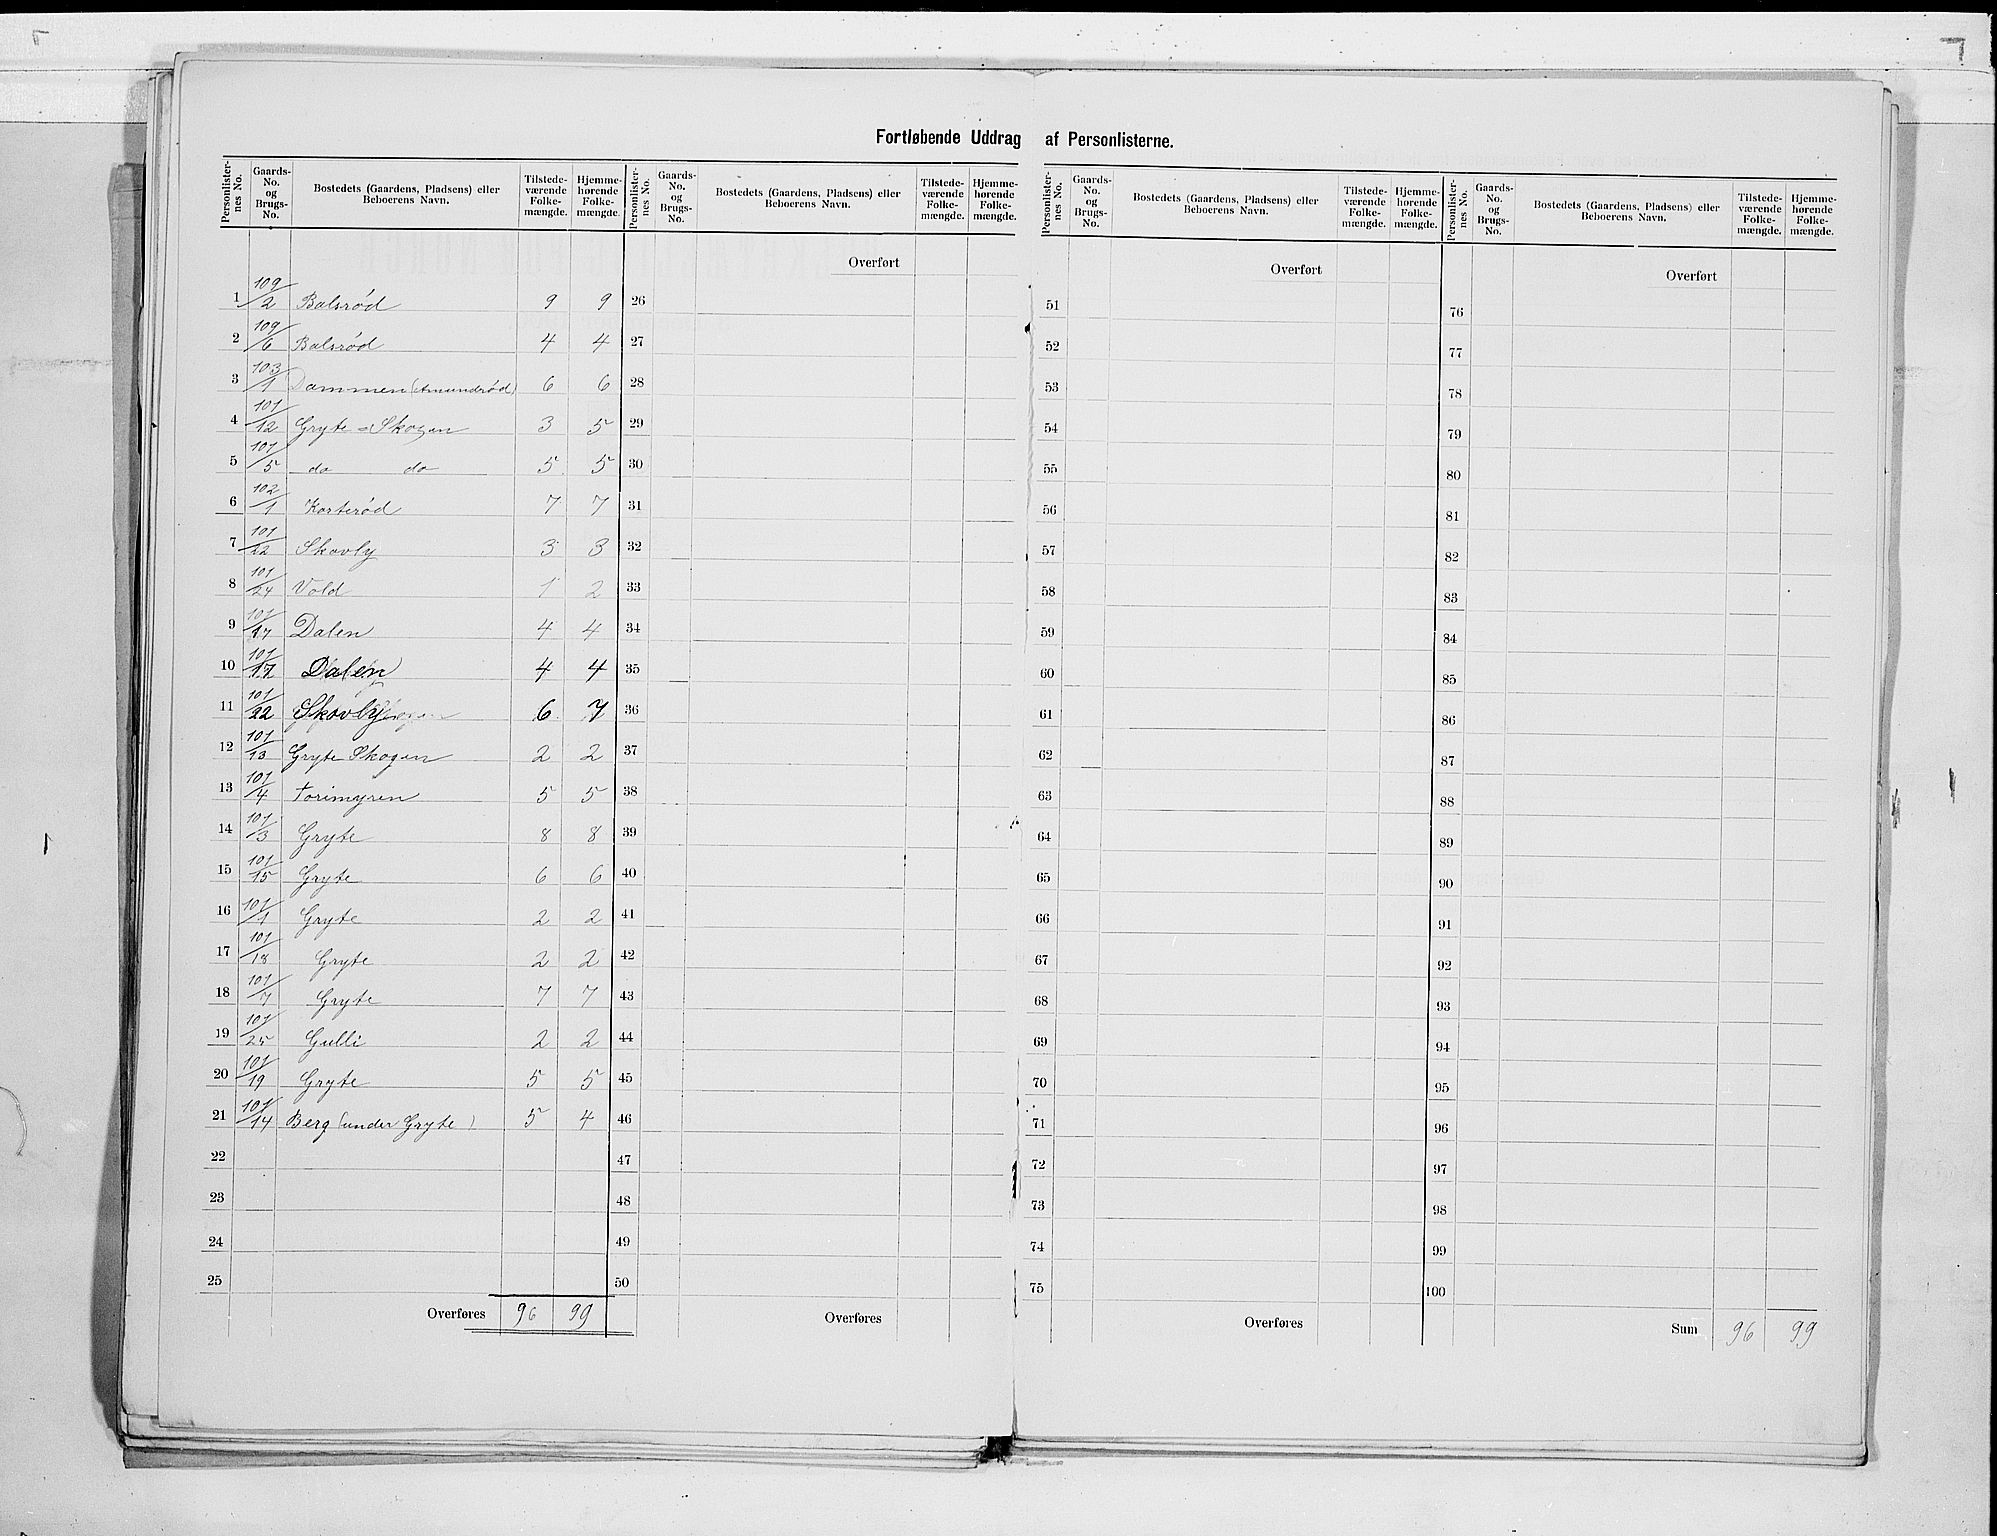 Fortløbende Uddrag af Personlisterne.
Personlister-nes No. Gaards-No. og Brugs-No. Bostedets (Gaardens, Pladsens) eller Beboerens Navn. Tilstede-værende Folke-mængde. Hjemme-hørende Folke-mængde. Personlister-nes No. Gaards-No. og Brugs-No. Bostedets (Gaardens, Pladsens) eller Beboerens Navn. Tilstede-værende Folke-mængde. Hjemme-hørende Folke-mængde. Personlister-nes No. Gaards-No. og Brugs-No. Bostedets (Gaardens, Pladsens) eller Beboerens Navn. Tilstede-værende Folke-mængde. Hjemme-hørende Folke-mængde. Personlister-nes No. Gaards-No. og Brugs-No. Bostedets (Gaardens, Pladsens) eller Beboerens Navn. Tilstede-værende Folke-mængde. Hjemme-hørende Folke-mængde.
Overført Overført Overført
1 109/2 Balsrød 9 9 26 51 76
2 109/6 Balsrød 4 4 27 52 77
3 103/1 Dammen (Amundrød) 6 6 28 53 78
4 101/12 Gryte = Skogen 3 5 29 54 79
5 101/5 do do 5 5 30 55 80
6 102/1 Korterød 7 7 31 56 81
7 101/22 Skovly 3 3 32 57 82
8 101/24 Vold 1 2 33 58 83
9 101/17 Dalen 4 4 34 59 84
10 101/17 Dalen 4 4 35 60 85
11 101/22 Skovly 6 7 36 61 86
12 101/13 Gryte Skogen 2 2 37 62 87
13 101/4 Torimyren 5 5 38 63 88
14 101/3 Gryte 8 8 39 64 89
15 101/15 Gryte 6 6 40 65 90
16 101/1 Gryte 2 2 41 66 91
17 101/18 Gryte 2 2 42 67 92
18 101/7 Gryte 7 7 43 68 93
19 101/25 Gulli 2 2 44 69 94
20 101/19 Gryte 5 5 45 70 95
21 101/14 Berg (under Gryte) 5 4 46 71 96
22 47 72 97
23 48 73 98
24 49 74 99
25 50 75 100
Overføres 96 99 Overføres Overføres Sum 96 99